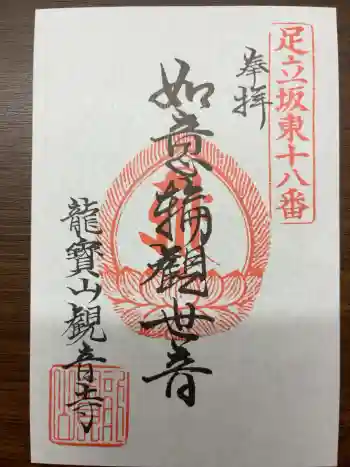 足立坂東十八番
奉拝
如意輪觀世音
龍寶山観音寺